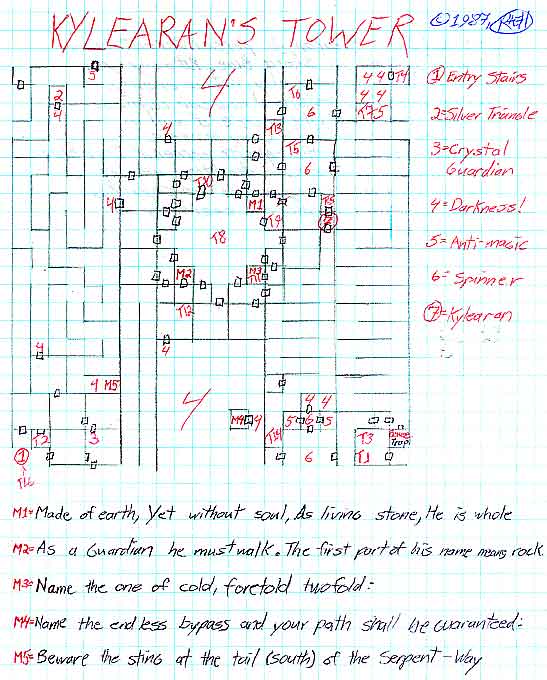 KYLEARAN'S TOWER
©1987,
① Entry Stairs
2=Silver Triangle
3=Crystal Guardian
4=Darkness!
5=Anti-magic
6=Spinner
⑦=Kylearan
5
4
4 4 T4
4 4
T7 5
2
4
T6
6
T13
4
T5
6
T10
4
M1
T9
T8
M2
M3
T12
4
4
4 M5
4
M4 4
4 4
5 6 5
T14
6
T2
3
T3
T1
1
M1=Made of earth, Yet without soul, As living stone, He is whole
M2=As a Guardian he must walk. The first part of his name means rock
M3=Name the one of cold, foretold twofold:
M4=Name the endless bypass and your path shall be guaranteed:
M5=Beware the sting at the tail (south) of the Serpent-Way